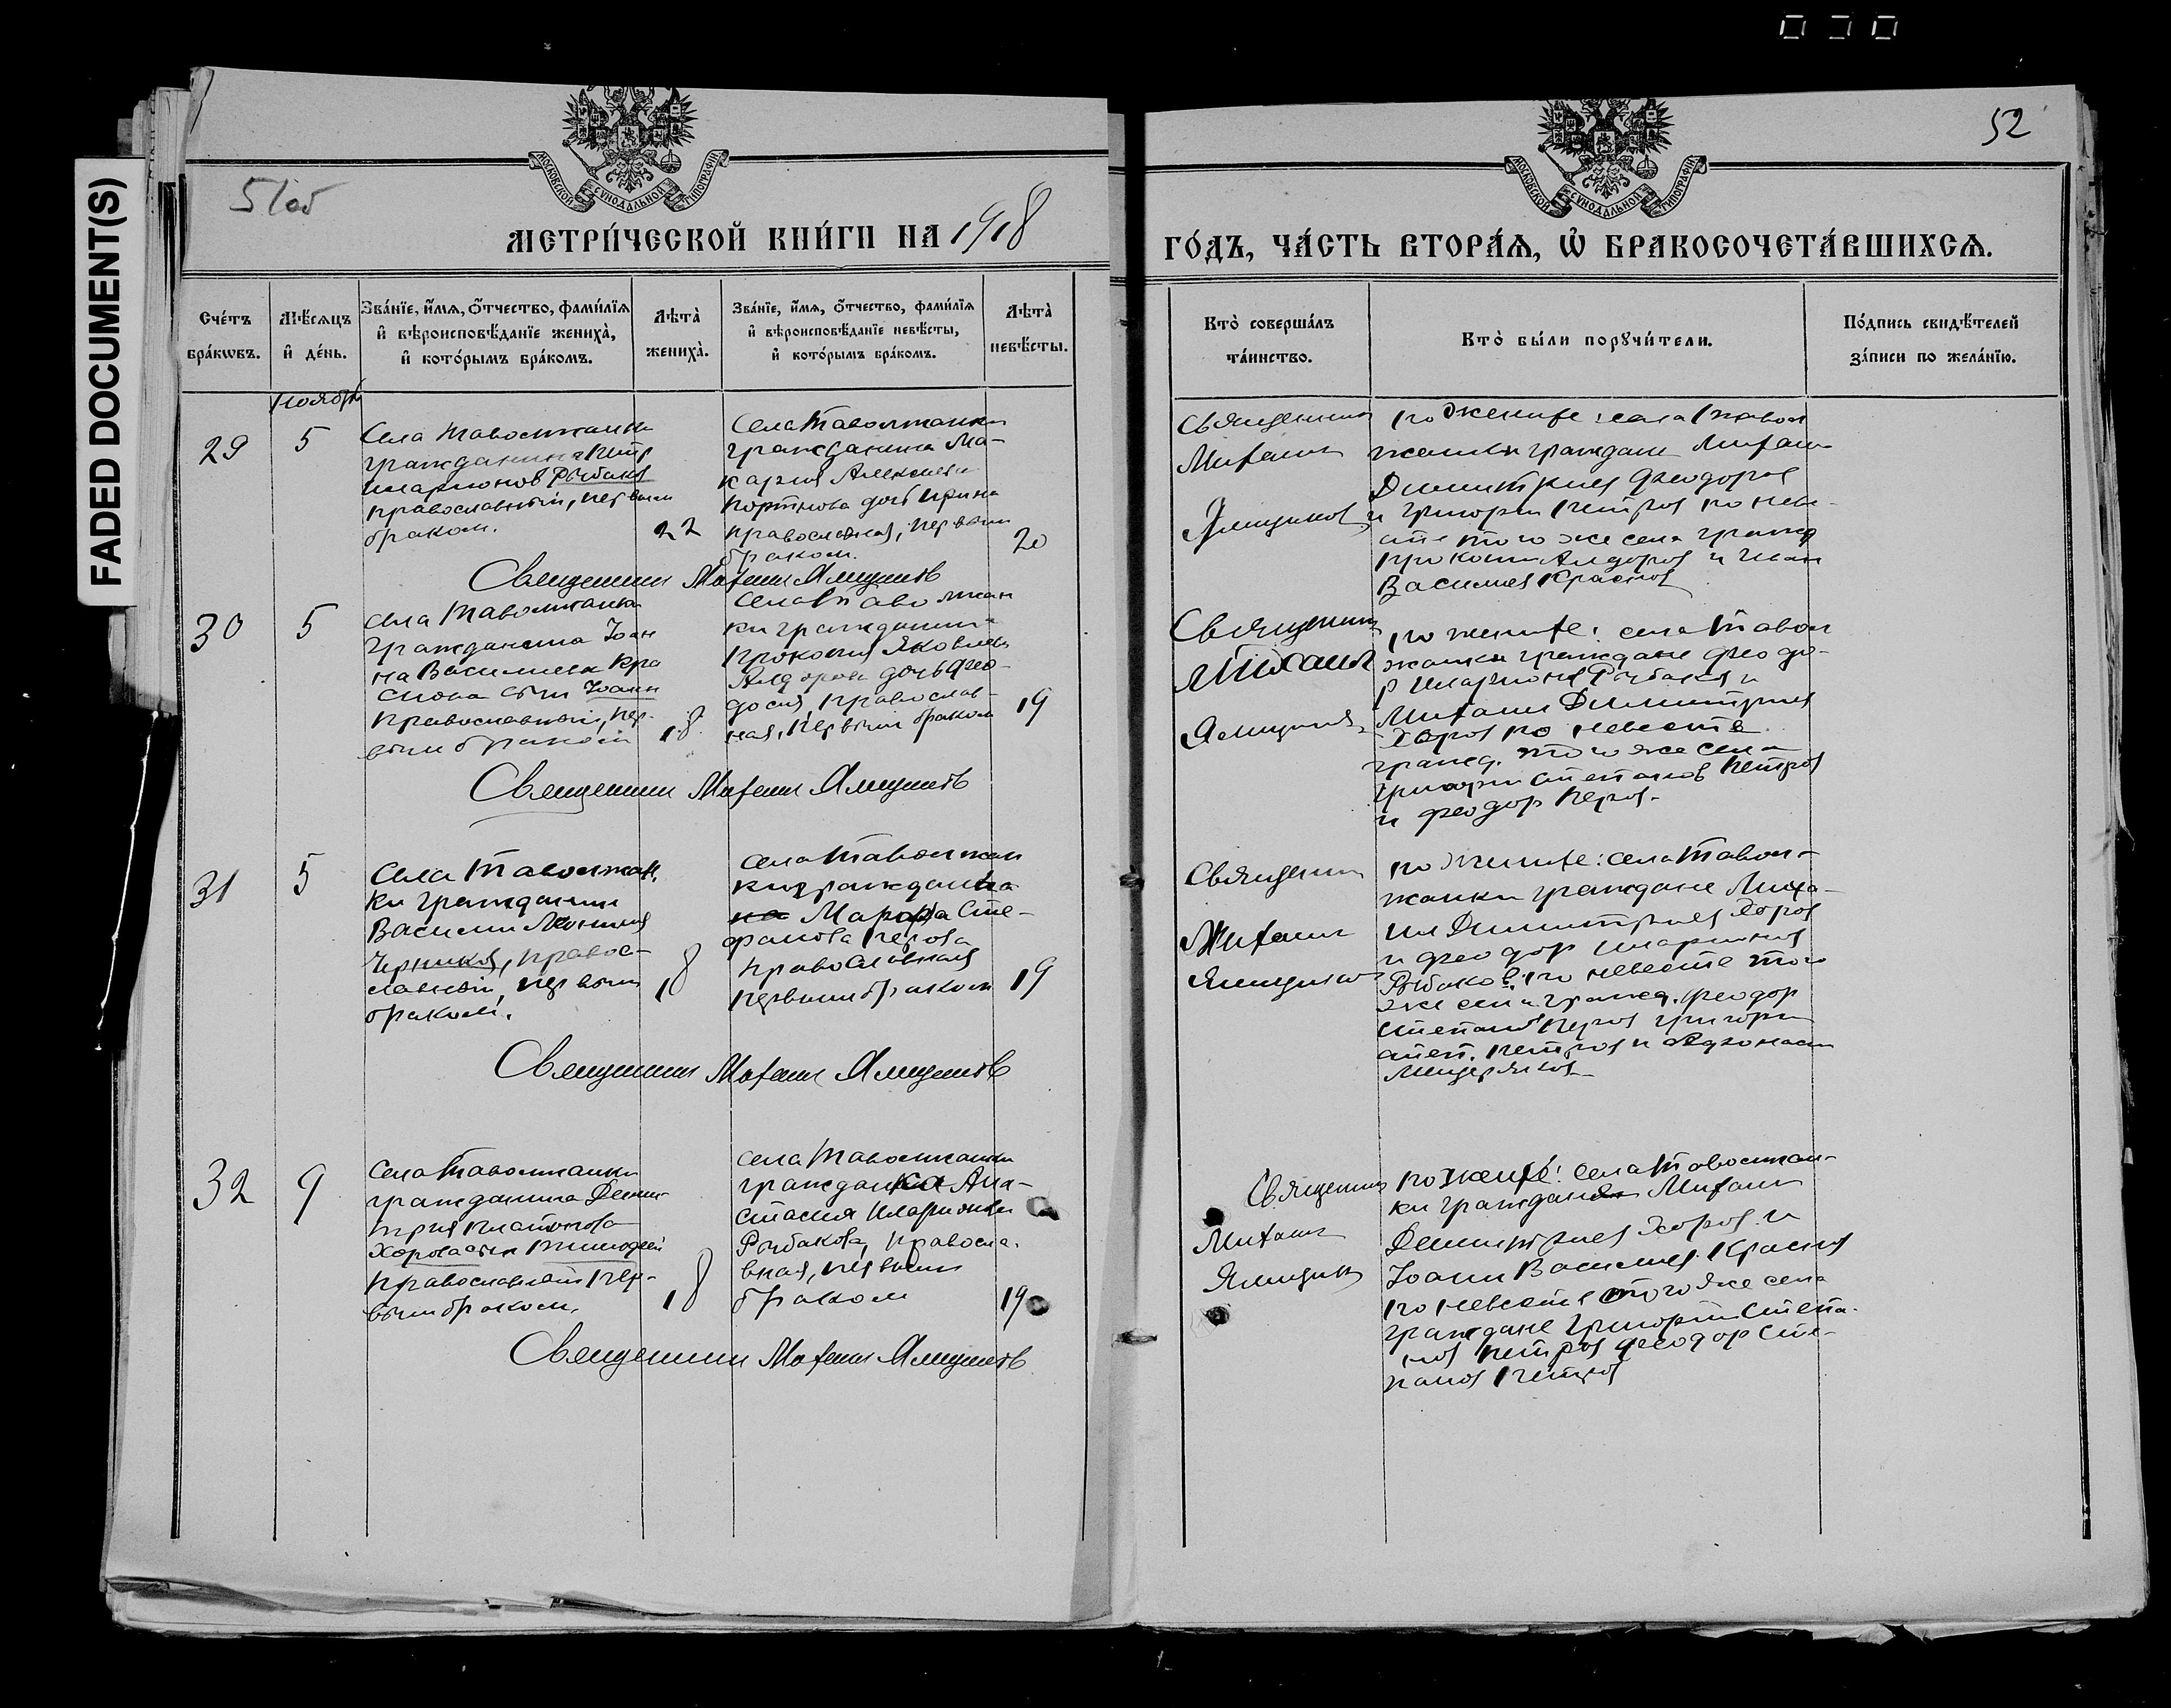 FADED DOCUMENT(S)
51об
52
МОСКОВСКОЙ СѴНОДАЛЬНОЙ ТИПОГРАФІИ
МОСКОВСКОЙ СѴНОДАЛЬНОЙ ТИПОГРАФІИ
МЕТРИ́ЧЕСКОЙ КНИ́ГИ НА 1918
ГО́ДЪ, ЧА́СТЬ ВТОРА́Я, Ѿ БРАКОСОЧЕТА́ВШИХСЯ.
Сче́тъ
бра́кѡвъ.
Мѣ́сяцъ
и҆ де́нь.
Зва́нїе, и҆́мя, ѻ҆́тчество, фами́лїя
и҆ вѣроисповѣ́данїе жениха̀,
и҆ кото́рымъ бра́комъ.
Лѣта̀
жениха̀.
Зва́нїе, и҆́мя, ѻ҆́тчество, фами́лїя
и҆ вѣроисповѣ́данїе невѣ́сты,
и҆ кото́рымъ бра́комъ.
Лѣта̀
невѣ́сты.
Кто̀ соверша́лъ
та́инство.
Кто̀ бы́ли порꙋчи́тели.
По́дпись свидѣ́телей
за́писи по жела́нїю.
Ноябрь
29
5
Села Таволжанки
гражданин Петр
Иларионов Рыбаков
православный, первым
браком.
22
Села Таволжанки
гражданина Ма-
кария Алексеева
Портнова дочь Ирина
православная, первым
браком.
20
Священник
Михаил
Ямщиков
по женихе: села Тавол
жанки граждане Михаил
Димитриев Феодоров
и Григорий Петров по нев-
сте того же села гражд
Прокопий Алдоров и Иван
Васильев Краснов
Священник Михаил Ямщиков
30
5
Села Таволжанки
гражданина Иоан
на Васильева Кра
снова сын Иоанн
православный, пер-
вым браком
18
Села Таволжан
ки гражданина
Прокопия Яковлева
Алдорова дочь Фео-
досия, православ-
ная, первым браком
19
Священник
Михаил
Ямщиков
по женихе: села Тавол
жанки граждане Феодо-
р Иларионов Рыбаков и
Михаил Димитриев
Хоров по невесте
гражд. того же села
Григорий Степанов Петров
и Феодор Перов.
Священник Михаил Ямщиков
31
5
Села Таволжан.
ки гражданин
Василий
Черников, правос-
лавный, первым
браком.
18
Села Таволжан
ки гражданка
на Марфа Сте-
фанова Перова
православная
первым браком
19
Священник
Михаил
Ямщиков
по женихе: села Тавол-
жанки граждане Миха-
ил Димитриев Хоров
и Феодор Иларионов
Рыбаков; по невесте того
же села гражд. Феодор
Степанов Перов Григорий
Степ. Петров и Афанасий
Мещеряков
Священник Михаил Ямщиков
32
9
Села Таволжанки
гражданина Дими-
трия Платонова
Хорова сын Тимофей
православный пер-
вым браком.
18
Села Таволжанки
гражданка Ана-
стасия Иларионова
Рыбакова, правосла-
вная, первым
браком
19
Священник
Михаил
Ямщиков
по женихе: Села Таволжан-
ки граждане Михаил
Димитриев Хоров и
Иоанн Васильев Краснов
по невесте того же села
граждане Григорий Степа-
нов Петров Феодор Сте-
панов Петров
Священник Михаил Ямщиков